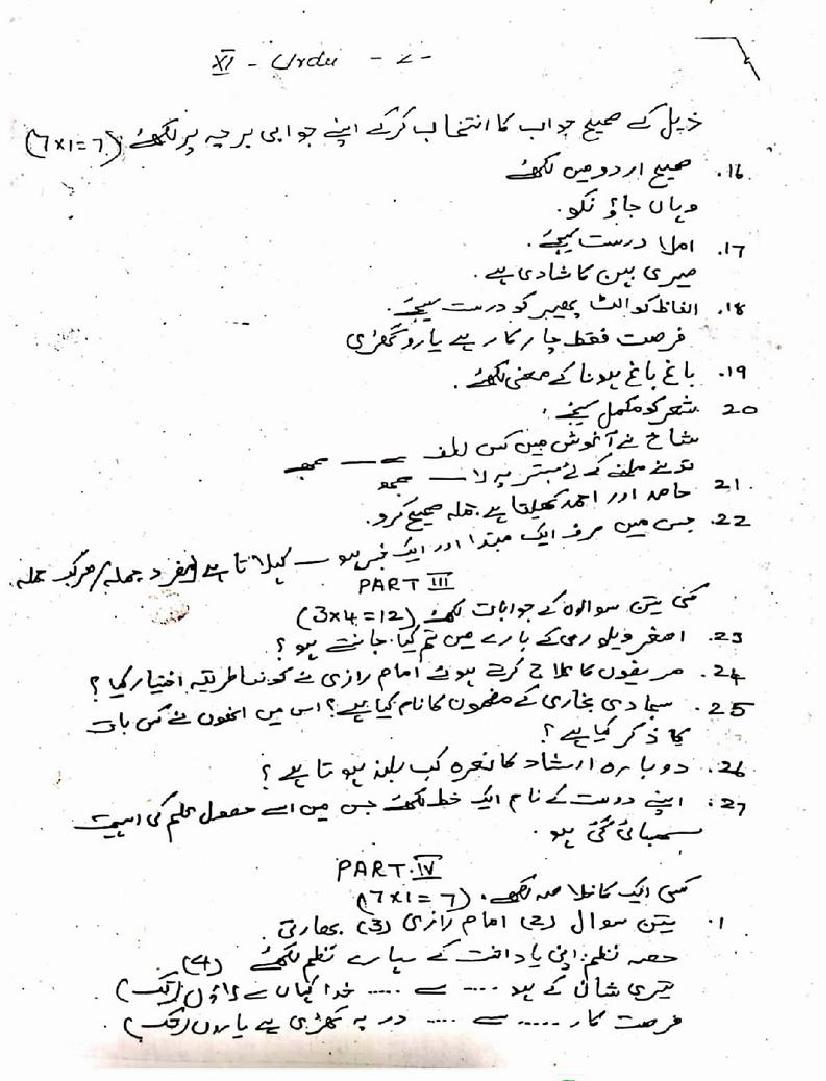 XI - Urdu - 2 -
ذیل کے صحیح جواب کا انتخاب کرکے اپنے جوابی پرچہ پر لکھئے (7x1=7)
16. صحیح اردو میں لکھئے
وہاں جاؤ نکو.
17. املا درست کیجئے.
میری بہن کا شادی ہے.
18. الفاظ کو الٹ پھیر کو درست کیجئے.
فرصت فقط چار کار ہے یارو گھڑی
19. باغ باغ ہونا کے معنی لکھئے.
20 شعر کو مکمل کیجئے.
شاخ نے آغوش میں کس لطف سے ــــ تجھے
تونے ملنے کے لئے بستر پہ لا ــــ مجھ
21. حامد اور احمد کھیلتا ہے جملہ صحیح کرو.
22. جس میں صرف ایک مبتدا اور ایک خبر ہو ـــ کہلاتا ہے (مفرد جملہ/مرکب جملہ
PART III
کسی تین سوالوں کے جوابات لکھئے (3x4=12)
23. اصغر ویلوری کے بارے میں تم کیا جانتے ہو؟
24. مریضوں کا علاج کرتے ہوئے امام رازی نے کونسا طریقہ اختیار کیا؟
25. سجادی بخاری کے مضمون کا نام کیا ہے؟ اس میں انھوں نے کس بات
کا ذکر کیا ہے؟
26. دوبارہ ارشاد کا نعرہ کب بلند ہوتا ہے؟
27. اپنے دوست کے نام ایک خط لکھئے جس میں اسے حصول علم کی اہمیت
سمجھائی گئی ہو.
PART. IV
کسی ایک کا خلاصہ لکھئے. (7x1=7)
1. تین سوال (2) امام رازی (3) بھارتی
حصہ نظم: اپنی یادداشت کے سہارے نظم لکھئے (4)
تیری شان کے ہو ..... سے ..... خدا کہاں سے لاؤں (تک)
فرصت کار ..... سے ..... در پہ کھڑی ہے یاروں (تک).